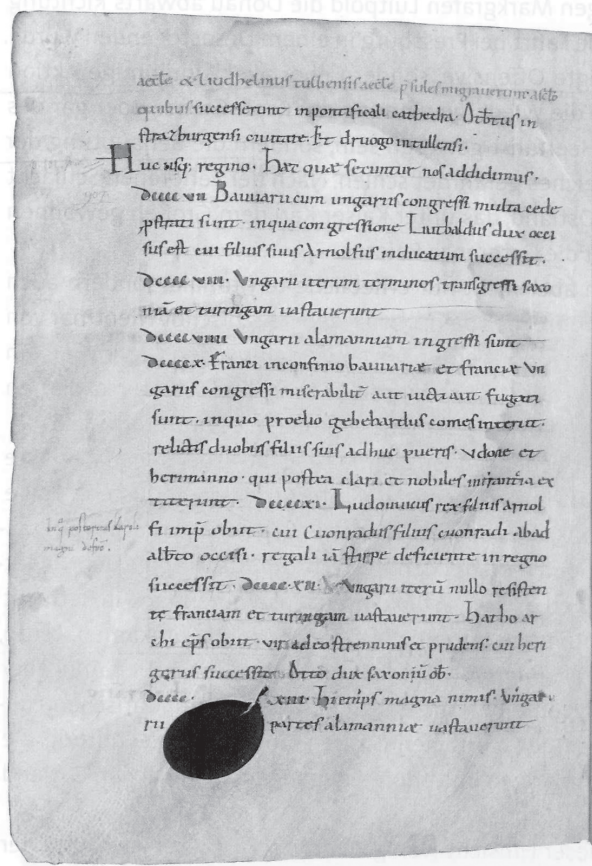 aeccle & Liudhelmus tullensis aeccle psules migraverunt a sclo
quibus successerunt in pontificali cathedra. Otbtus in
strazburgensi ciuitate. Et druogo in tullensi.
Huc usq; regino. Hæc quæ secuntur nos addidimus.
dcccc vii Bauuarii cum ungariis congressi multa cede
pstrati sunt. in qua congressione Liutbaldus dux occi
sus est cui filius suus Arnolfus in ducatum successit.
dcccc viii. Ungarii iterum terminos transgressi saxo
niā et turingam uastauerunt
dcccc viiii Ungarii alamanniam ingressi sunt
dcccc x. Franci in confinio bauuariæ et franciæ Un
gariis congressi miserabilit aut uicti aut fugati
sunt. in quo proelio gebehardus comes interiit.
relictis duobus filiis suis adhuc pueris. vdone et
herimanno. qui postea clari et nobiles in francia ex
titerunt. dcccc xi. Ludouuicus rex filius arnol
fi imp obiit. cui Cuonradus filius cuonradi ab ad
albto occisi. regali iā stirpe deficiente in regno
successit. dcccc xii. Ungarii iterū nullo resisten
te franciam et turingam uastauerunt. Hatho ar
chi eps obiit. vir adeo strennuus et prudens. cui heri
gerus successit. Otto dux saxonū ob.
dcccc. xiii. Hiemps magna nimis. Ungar
rii partes alamanniæ uastauerunt
magni